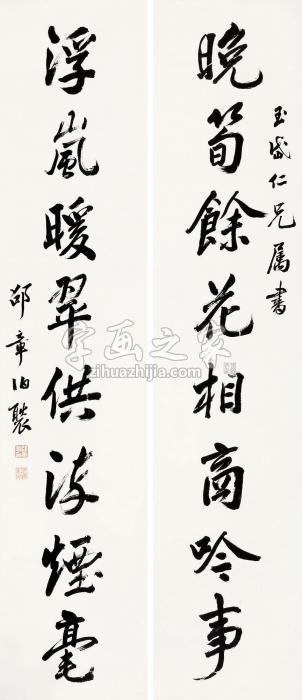 玉岱仁兄属書
晚筍餘花相商吟事
浮嵐暖翠供煙毫
邵章伯褧
字画之家
zihuazhijia.com